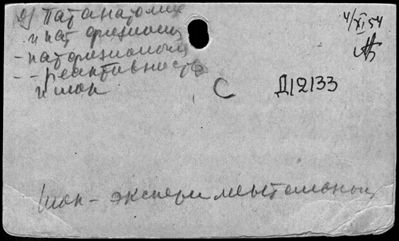 а) Патанатомия
и пат физиолог
4/XI 54
- патофизиология
- - реактивность
и шок
С Д12133
Шок - эксперименталь­ной